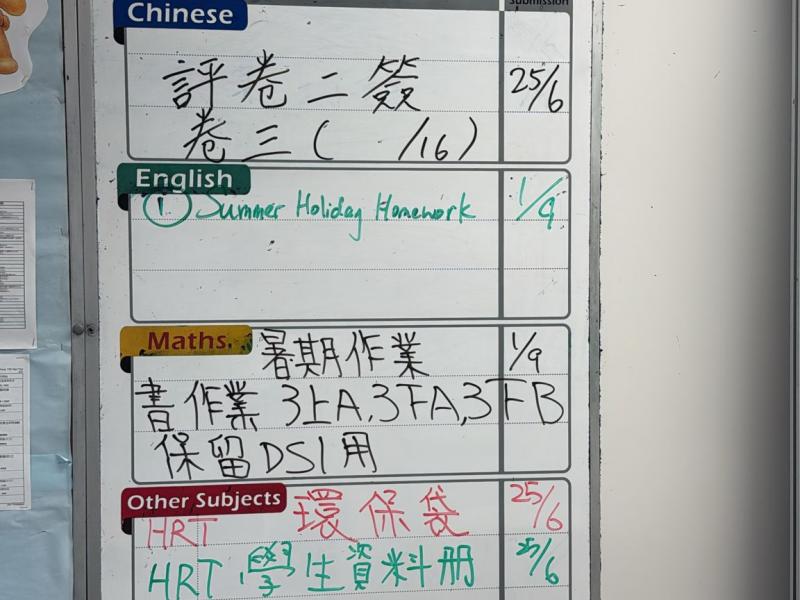 Submission
Chinese
評卷二簽 25/6
卷三( /16)
English
① Summer Holiday Homework 1/9
Maths
暑期作業 1/9
書作業 3上A,3下A,3下B
保留DS1用
Other Subjects
HRT 環保袋 25/6
HRT 學生資料册 25/6